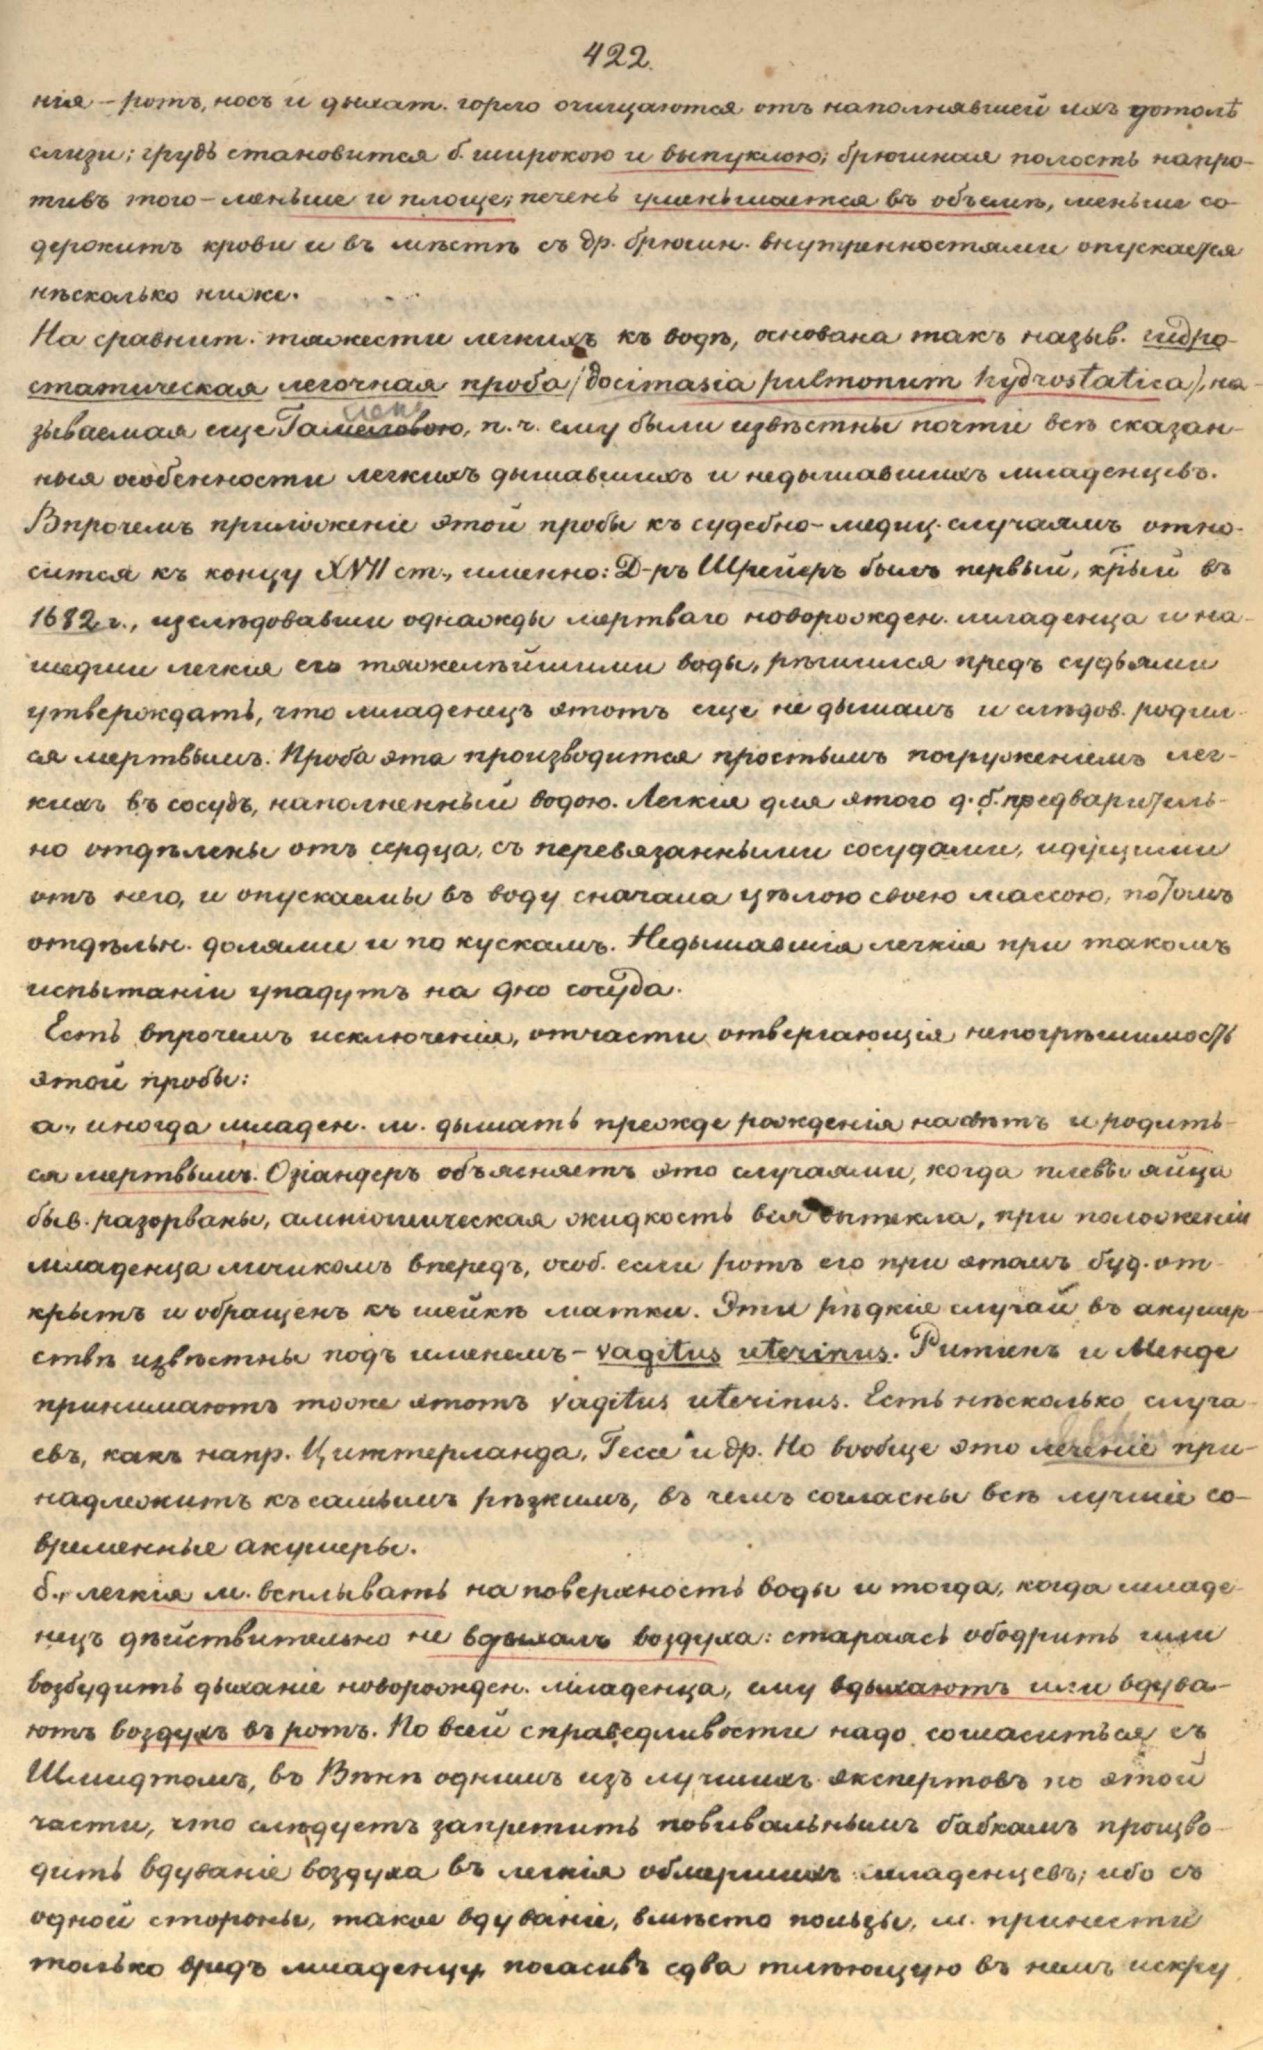 422.
нія – ротъ, носъ и дыхат. горло очищаются отъ наполнявшей ихъ дотолѣ
слизи; грудь становится б. широкою и выпуклою; брюшная полость напро-
тивъ того – меньше и площе; печень уменьшается въ объемѣ, меньше со-
держитъ крови и въ мѣстѣ съ др. брюшн. внутренностями опускается
нѣсколько ниже.
На сравнит. тяжести легкихъ къ водѣ, основана такъ назыв. гидро-
статическая легочная проба (docimasia pulmonum hydrostatica), на-
зываемая еще Гамеловою, п. ч. ему были извѣстны почти всѣ сказан-
ныя особенности легкихъ дышавшихъ и недышавшихъ младенцевъ.
Впрочемъ приложеніе этой пробы къ судебно-медиц. случаямъ отно-
сится къ концу XVII ст., именно: Д-ръ Шрейеръ былъ первый, к-рый въ
1682 г., изслѣдовавши однажды мертваго новорожден. младенца и на-
шедши легкія его тяжелѣйшими воды, рѣшился предъ судьями
утверждать, что младенецъ этотъ еще не дышалъ и слѣдов. родил-
ся мертвымъ. Проба эта производится простымъ погруженіемъ лег-
кихъ въ сосудъ, наполненный водою. Легкія для этого д. б. предваритель-
но отдѣлены отъ сердца, съ перевязанными сосудами, идущими
отъ него, и опускаемы въ воду сначала цѣлою своею массою, потомъ
отдѣльн. долями и по кускамъ. Недышавшія легкія при такомъ
испытаніи упадутъ на дно сосуда.
Есть впрочемъ исключенія, отчасти отвергающія непогрѣшимость
этой пробы:
а., иногда младен. м. дышать прежде рожденія на свѣтъ и родить-
ся мертвымъ. Озіандеръ объясняетъ это случаями, когда плевы яйца
быв. разорваны, амніотическая жидкость вся вытекла, при положеніи
младенца личикомъ впередъ, особ. если ротъ его при этомъ буд. от-
крытъ и обращенъ къ шейкѣ матки. Эти рѣдкіе случаи въ акушер-
ствѣ извѣстны подъ именемъ – vagitus uterinus. Ритгенъ и Менде
принимаютъ тоже этотъ vagitus uterinus. Есть нѣсколько случа-
евъ, какъ напр. Циттерланда, Гессе и др. Но вообще это леченіе при-
надлежитъ къ самымъ рѣзкимъ, въ чемъ согласны всѣ лучшіе со-
временные акушеры.
б., легкія м. всплывать на поверхность воды и тогда, когда младе-
нецъ дѣйствительно не вдыхалъ воздуха: стараясь ободрить или
возбудить дыханіе новорожден. младенца, ему вдыхаютъ или вдува-
ютъ воздухъ въ ротъ. По всей справедливости надо согласиться съ
Шмидтомъ, въ Вѣнѣ однимъ изъ лучшихъ экспертовъ по этой
части, что слѣдуетъ запретить повивальнымъ бабкамъ произво-
дить вдуваніе воздуха въ легкія обмершихъ младенцевъ; ибо съ
одной стороны, такое вдуваніе, вмѣсто пользы, м. принести
только вредъ младенцу, погасивъ едва тлѣющую въ немъ искру